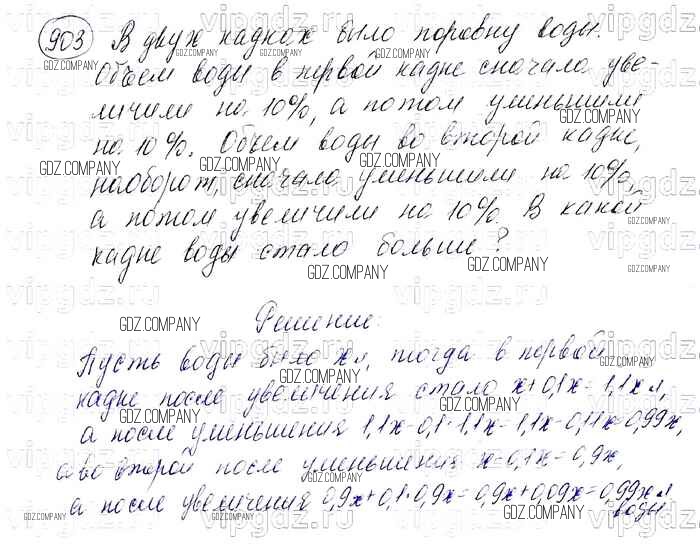 903 В двух кадках было поровну воды.
Объем воды в первой кадке сначала уве-
личили на 10%, а потом уменьшили
на 10%. Объем воды во второй кадке,
наоборот, сначала уменьшили на 10%,
а потом увеличили на 10%. В какой
кадке воды стало больше?
Решение:
Пусть воды было x л, тогда в первой
кадке после увеличения стало x+0,1x=1,1x л,
а после уменьшения 1,1x-0,1·1,1x=1,1x-0,11x=0,99x,
а во второй после уменьшения x-0,1x=0,9x,
а после увеличения 0,9x+0,1·0,9x=0,9x+0,09x=0,99x л
воды
GDZ.COMPANY
vipgdz.ru